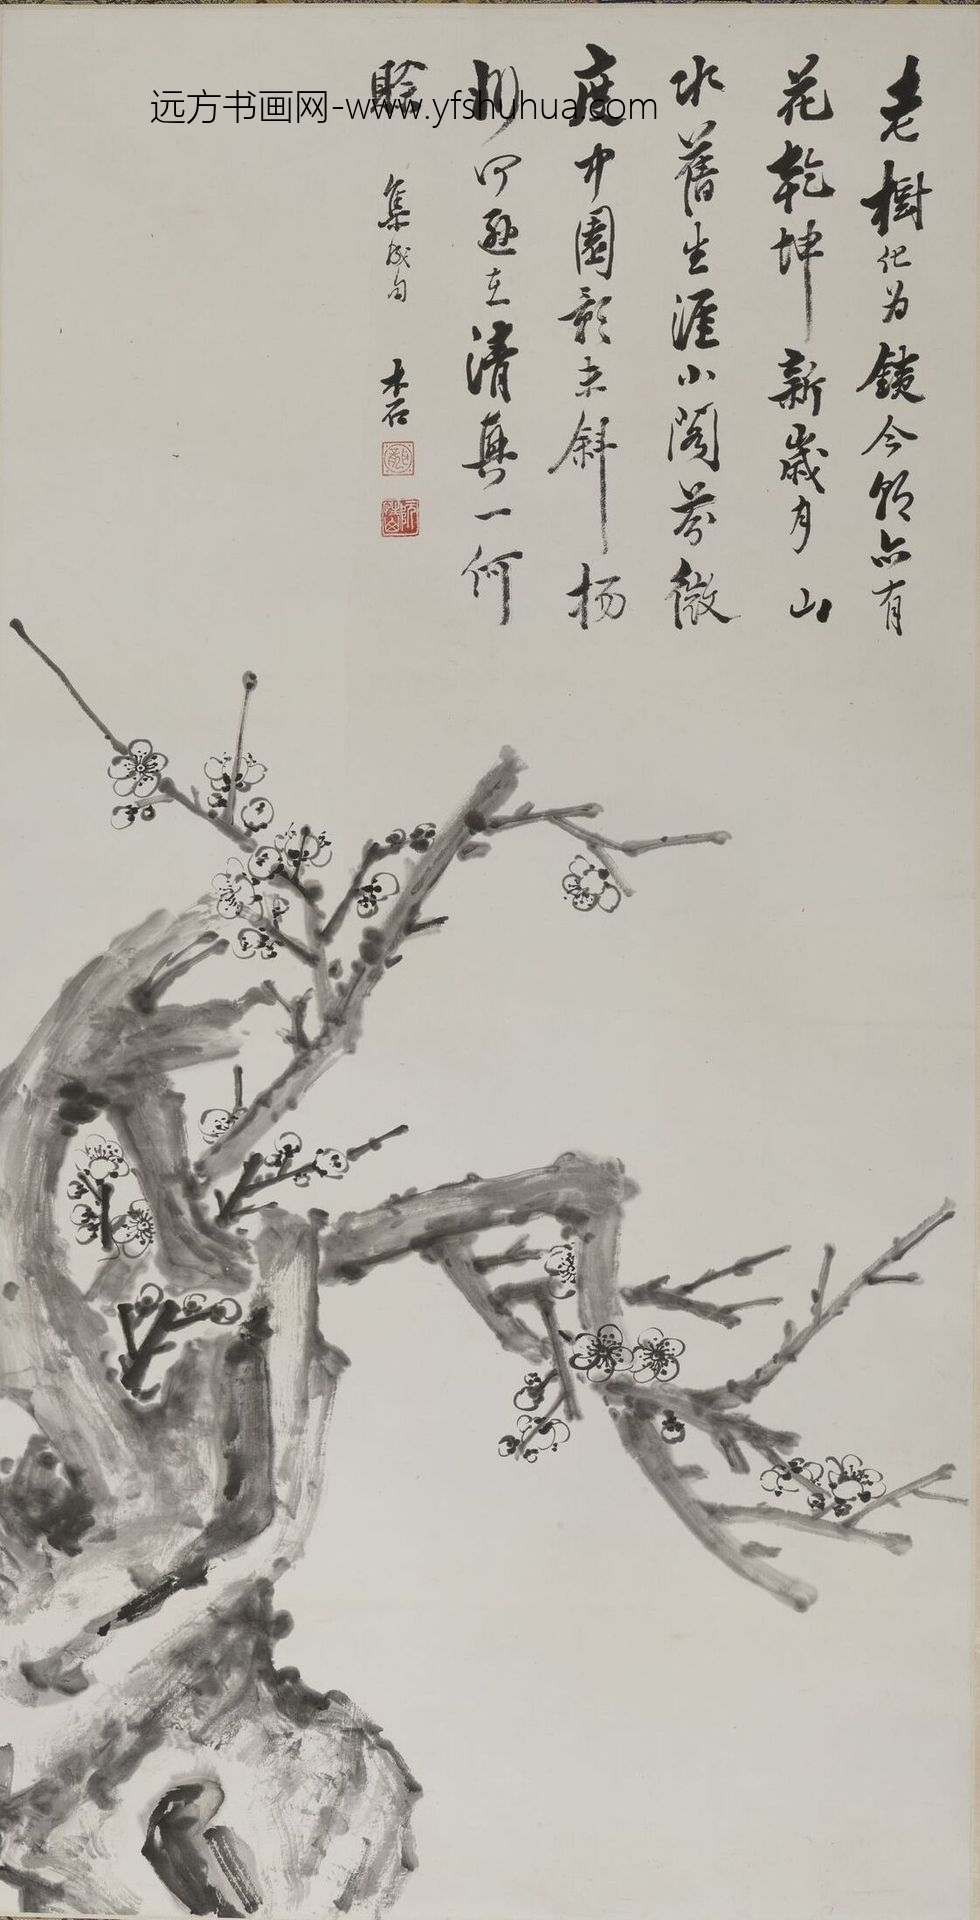 老樹化为鐵今朝亦有
花乾坤新歲月山
水舊生涯小閣芬微
度中園影未斜扬
州何逊在清真一何
賒
集成句
木石
远方书画网-www.yfshuhua.com